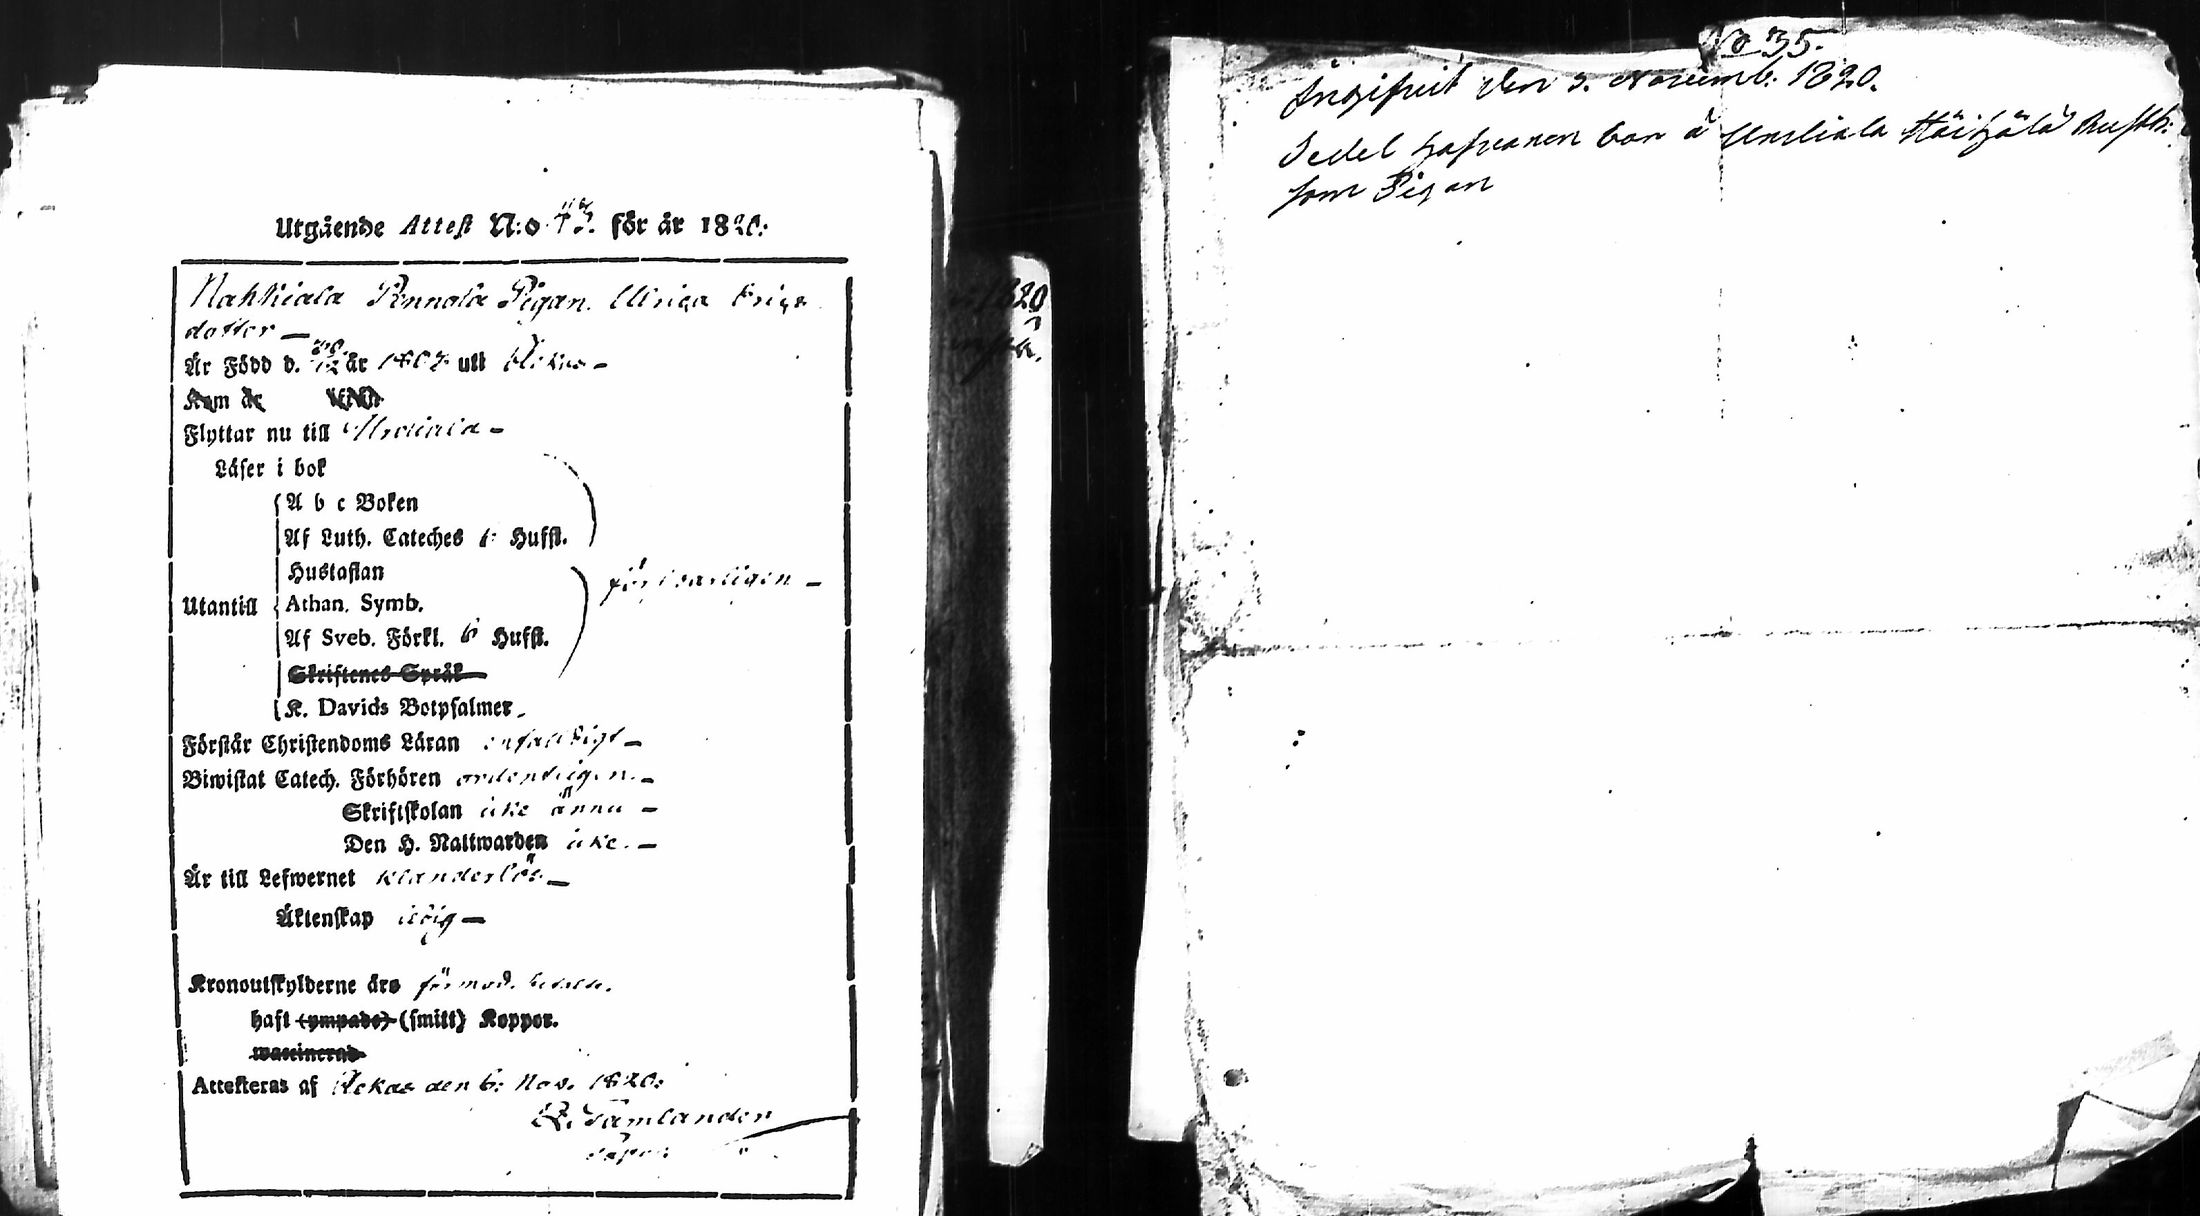 Utgående Attest N:o 43. för år 1820:
Nahkiala Pennola Pigan. Ulrica Erigs
dotter —
Är Född d. 20/12 år 1807 uti Akas —
Kom år
Flyttar nu till Urdiala —
Läser i bok
A b c Boken
Af Luth. Cateches 6 Hufst.
Hustaflan
försvarligen —
Utantill Athan. Symb.
Af Sveb. Förkl. 6 Hufst.
Skriftenes Språk
K. Davids Botpsalmer
Förstår Christendoms Läran enfaldigt —
Biwistat Catech. Förhören ordentligen —
Skriftskolan icke ännu —
Den H. Nattwarden icke. —
Är till Lefwernet klanderlös —
Äktenskap ledig —
Kronoutskylderne äro förmod. betalt.
haft (ympade) (smitt) Koppor.
waccinerad
Attesteras af Ackas den 6: Nov. 1820:
Tamlander
1820
No 35.
Ingifvit den Novemb: 1820.
Sedel hafvanen bor å Urdiala Rusth:
som Pigan